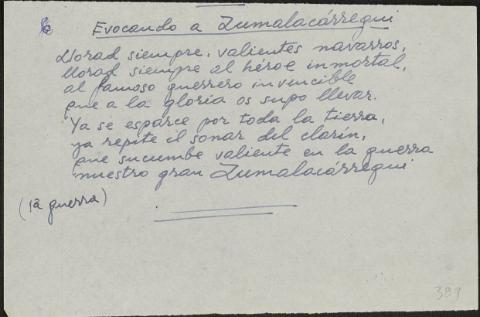 Evocando a Zumalacárregui
Llorad siempre, valientes navarros,
llorad siempre al héroe inmortal,
al famoso guerrero invencible
que a la gloria os supo llevar.
Ya se esparce por toda la tierra,
ya repite el sonar del clarín,
que sucumbe valiente en la guerra
nuestro gran Zumalacárregui
(1ª guerra)
389